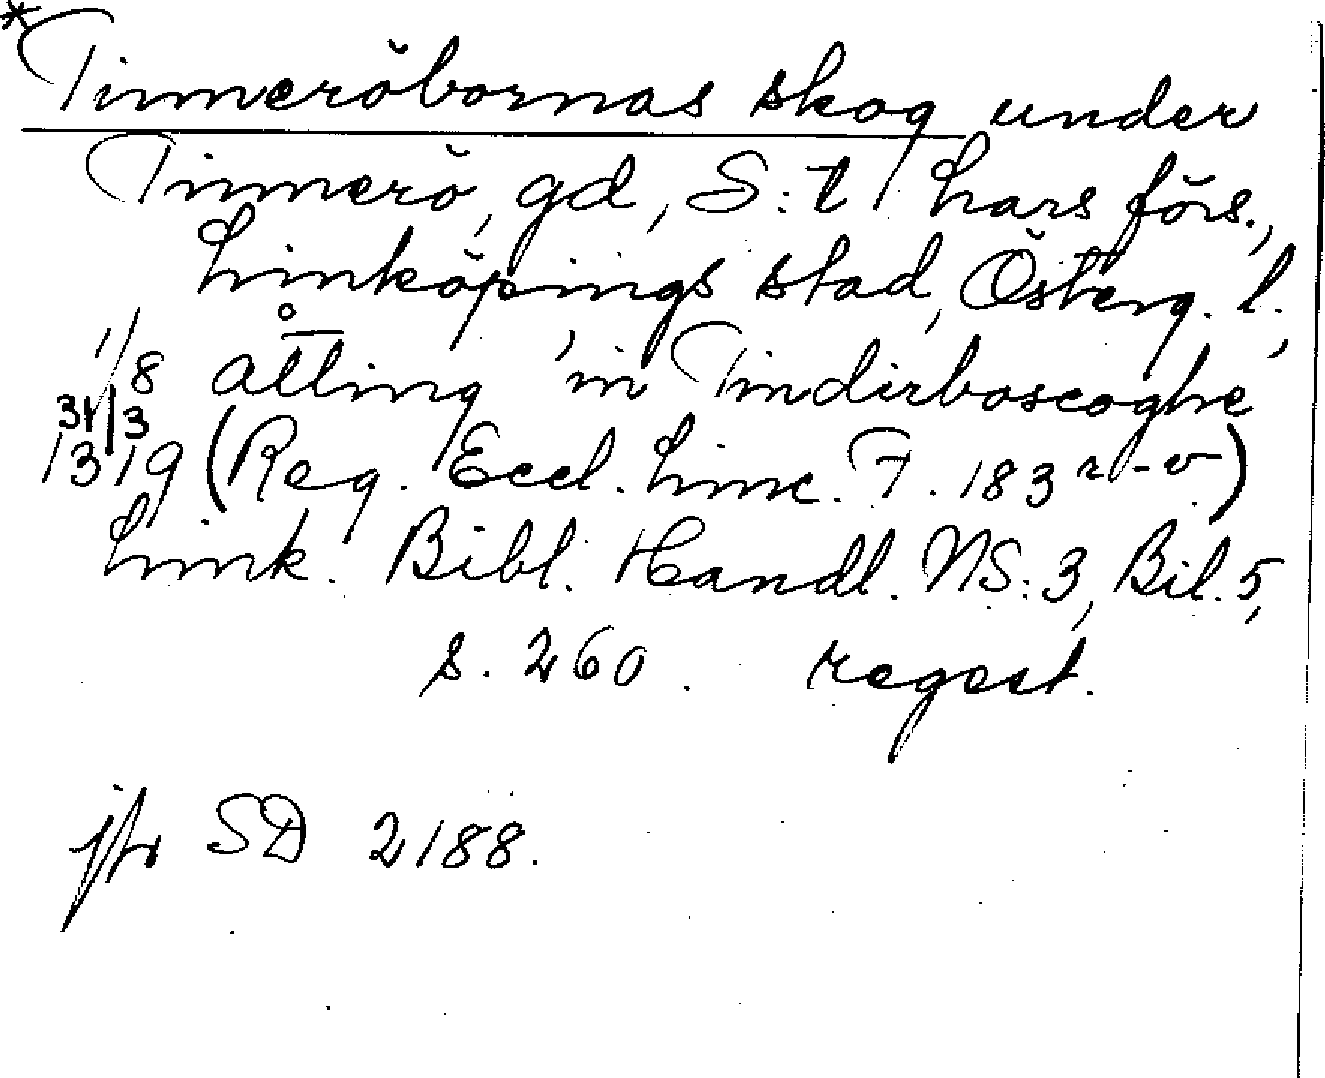 *Tinneröbornas skog under
Tinnerö, gd, S:t Lars förs.,
Linköpings stad, Österg. l.,
1/8 åtting in Tindirboscoghe
31/3 1319 (Reg. Eccl. Linc. F. 183 r-v)
Link. Bibl. Handl. NS:3, Bil. 5,
s. 260. regest.
jfr SD 2188.